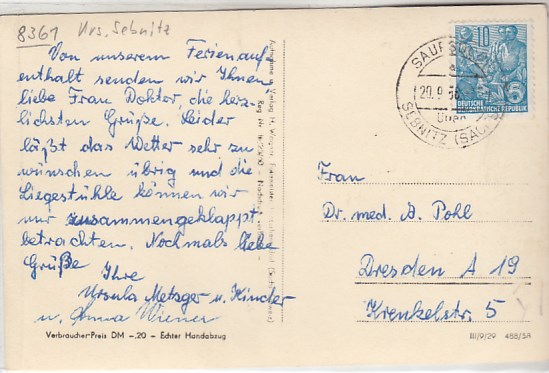 8361 Krs. Sebnitz
Von unserem Ferienauf-
enthalt senden wir Ihnen
liebe Frau Doktor, die herz-
lichsten Grüße. Leider
läßt das Wetter sehr zu
wünschen übrig und die
Liegestühle können wir
nur zusammengeklappt
betrachten. Nochmals liebe
Grüße
Ihre
Ursula Metzger u. Kinder
u. Anna Wiener
Verbraucher-Preis DM -,20 - Echter Handabzug
Aufnahme u. Verlag H. Wagner
SAUPSDORF
20.9.58
über
SEBNITZ (SACHS)
10
DEUTSCHE
DEMOKRATISCHE REPUBLIK
5
Frau
Dr. med. A. Pohl
Dresden A 19
Krenkelstr. 5
III/9/29 488/58